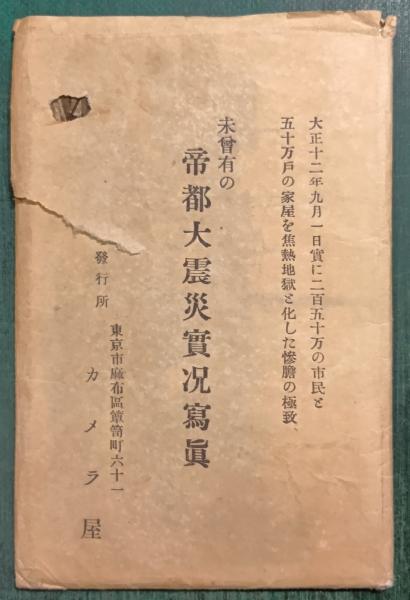 大正十二年九月一日實に二百五十万の市民と
五十万戸の家屋を焦熱地獄と化した慘膽の極致、
未曾有の
帝都大震災實况寫眞
發行所
東京市麻布區簞笥町六十一
カメラ屋